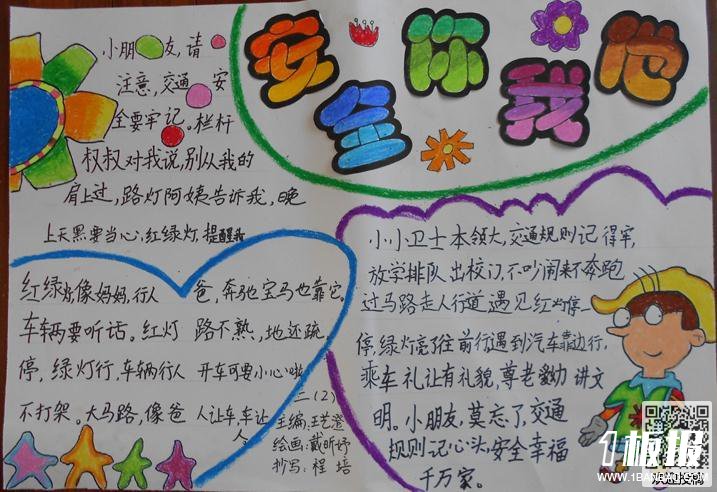 安全你我他
小朋友,请
注意,交通安
全要牢记。栏杆
叔叔对我说,别从我的
肩上过,路灯阿姨告诉我,晚
上天黑要当心,红绿灯,提醒我
红绿灯像妈妈,行人
车辆要听话。红灯
停,绿灯行,车辆行人
不打架。大马路,像爸
爸,奔驰宝马也靠它。
路不熟,地还疏
开车可要小心啦
人让车,车让
人
二(2)
主编:王艺澄
绘画:戴昕妤
抄写:程培
小小卫士本领大,交通规则记得牢,
放学排队出校门,不吵闹来不奔跑
过马路走人行道,遇见红灯停一
停,绿灯亮了往前行遇到汽车靠边行,
乘车礼让有礼貌,尊老爱幼讲文
明。小朋友,莫忘了,交通
规则记心头,安全幸福
千万家。
板报
WWW.1BANBAO.COM
欢迎投稿